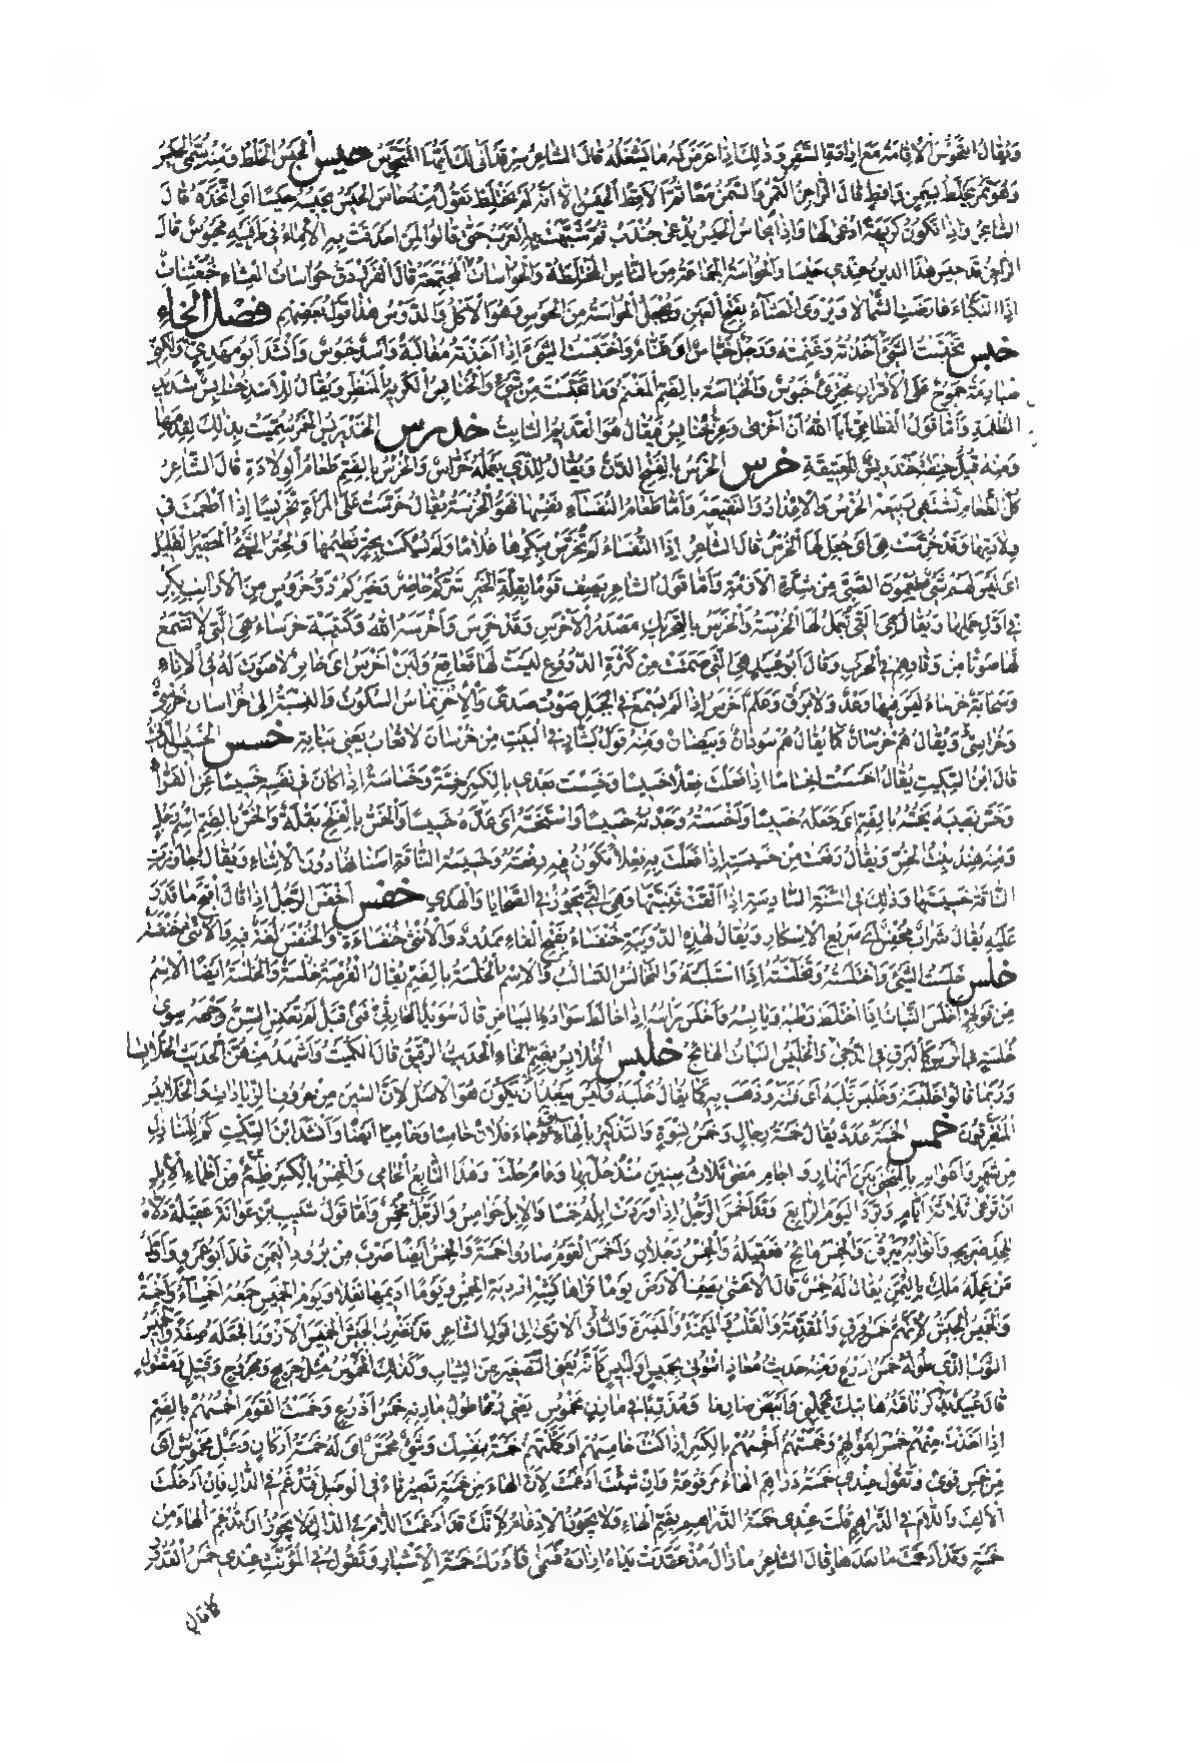 ويقال التحوّس الإقامة مع إرادة السفر وذلك إذا عرض له ما يشغله قال الشاعر سر قد أنى لك أيها المتحوس حيس الحيس الخلط ومنه سمي الحيس
وهو تمر يخلط بسمن وأقط قال الراجز التمر والسمن معا ثم الأقط الحيس إلا أنه لم يختلط تقول منه حاس الحيس يحيسه حيسا أي اتخذه قال
الشاعر وإذا تكون كريهة أدعى لها وإذا يحاس الحيس يدعى جندب ثم شبهت به العرب حتى قالوا لمن أحدقت به الإماء في طرفيه محيوس قال
الراجز قد حيس هذا الدين عندي حيسا والحواسة الجماعة من الناس المختلطة والحواسات المجتمعة قال الفرزدق حواسات العشاء خبعثنات
إذا النكباء عارضت الشمالا ويروى العشاء بفتح العين ويجعل الحواسة من الحوس وهو الأكل والدوس هذا قول بعضهم فصل الخاء
خبس تخبست الشيء أخذته وغنمته ورجل خباس أي غنام واختبست الشيء إذا أخذته مغالبة وأسد خبوس وأنشد أبو مهدي ولكني
ضبارمة جموح على الأقران مجترئ خبوس والخباسة بالضم المغنم وما تخبست من شيء والخنابس الكريه المنظر ويقال للأسد خنابس شديد
الظلمة وأما قول القطامي أبى الله أن أخزى وعز خنابس فيقال هو القديم الثابت خدرس الخندريس الخمر سميت بذلك لقدمها
ومنه قيل حنطة خندريس للعتيقة خرس الخرس بالفتح الدن ويقال للذي يعمله خراس والخرس بالضم طعام الولادة قال الشاعر
كل الطعام تشتهي ربيعه الخرس والإعذار والنقيعه وأما طعام النفساء نفسها فهو الخرسة يقال خرست على المرأة تخريسا إذا أطعمت في
ولادتها وقد خرست هي أي جعل لها الخرس قال الشاعر إذا النفساء لم تخرس ببكرها غلاما ولم يسكت بحتر فطيمها والحتر الشيء الحقير القليل
أي ليس لهم شيء يطعمونه الصبي من شدة الأزمة وأما قول الشاعر يصف قوما بقلة الخير شركم حاضر وخيركم در خروس من الأرانب بكر
في أول حملها ويقال هي التي تعمل لها الخرسة والخرس بالتحريك مصدر الأخرس وقد خرس وأخرسه الله وكتيبة خرساء هي التي لا تسمع
لها صوتا من وقارهم في الحرب وقال أبو عبيد هي التي صمتت من كثرة الدروع ليست لها قعاقع ولبن أخرس أي خاثر لا صوت له في الإناء
وسحابة خرساء ليس فيها رعد ولا برق وعلم أخرس إذا لم يسمع في الجبل صوت صدى والأخر تماس السكوت والنسبة إلى خراسان خرسي
وخراسي ويقال هم خرسان كما يقال هم سودان وبيضان ومنه قول بشار في البيت من خرسان لا تعاب يعني بناته خسس الخسيس الدني
قال ابن السكيت يقال أخسست إخساسا إذا فعلت فعلا خسيسا وخسست بعدي بالكسر خسة وخساسة إذا كان في نفسه خسيسا عن الفراء
وخس نصيبه يخسه بالضم أي جعله خسيسا وأخسسته وجدته خسيسا واستخسه أي عده خسيسا والخس بالفتح بقلة والخس بالضم اسم رجل
ومنه هند بنت الخس ويقال رفعت من خسيسته إذا فعلت به فعلا تكون فيه رفعته وخسيسة الناقة أسنانها دون الإثناء ويقال جاوزت
الناقة خسيستها وذلك في السنة السادسة إذا ألقت ثنيتها وهي التي تجوز في الضحايا والهدي خفس أخفس الرجل إذا قال أقبح ما قدر
عليه يقال شراب مخفس أي سريع الإسكار ويقال لهذه الدويبة خنفساء بفتح الفاء ممدود والأنثى خنفساءة والخنفس لغة فيه والأنثى خنفسة
خلس خلست الشيء واختلسته وتخلسته إذا استلبته والتخالس التسالب والاسم الخلسة بالضم يقال الفرصة خلسة والخلسة أيضا الاسم
من قولهم أخلس النبات إذا اختلط رطبه ويابسه وأخلس رأسه إذا خالط سواده البياض قال سويد الحارثي فتى قبل لم تعنس السن وجهه سوى
خلسة في الرأس كالبرق في الدجى والخليس النبات الهائج خلبس الخلابس بضم الخاء الحديث الرقيق قال الكميت وأشهد منهن الحديث الخلابسا
وربما قالوا خلبسه وخلبس قلبه أي فتنه وذهب به كما يقال خلبه وليس يبعد أن يكون هو الأصل لأن السين من حروف الزيادات والخلابيس
المتفرقون خمس الخمسة عدد يقال خمسة رجال وخمس نسوة والتذكير بالهاء وجاء فلان خامسا وخاميا أيضا وأنشد ابن السكيت كم للمنازل
من شهر وأعوام بالمنحنى بين أنهار وآجام مضى ثلاث سنين منذ حل بها وعام حلت وهذا التابع الخامي والخمس بالكسر ظمء من أظماء الإبل
أن ترعى ثلاثة أيام وترد اليوم الرابع وقد أخمس الرجل إذا وردت إبله خمسا والإبل خوامس والرجل مخمس وأما قول شبيب بن عوانة عقيلة دلاه
للحد ضريحه وأثوابه يبرقن والخمس مائح فعقيلة والخمس رجلان وأخمس القوم صاروا خمسة والخمس أيضا ضرب من برود اليمن قال أبو عمرو وأول
من عمله ملك باليمن يقال له خمس قال الأعشى يصف الأرض يوما تراها كشبه أردية الخمس ويوما أديمها نغلا ويوم الخميس جمعه أخمساء وأخمسة
والخميس الجيش لأنهم خمس فرق والمقدمة والقلب والميمنة والميسرة والساق ألا ترى إلى قول الشاعر قد نضرب الجيش الخميس الأزورا نجعله صفة والخميس
الثوب الذي طوله خمس أذرع ومنه حديث معاذ ائتوني بخميس أو لبيس كأنه يعني الصغير من الثياب وكذلك المخموس مثل جريح ومجروح وقتيل ومقتول
قال عبيد يذكر ناقته هاتيك تحملني وأبيض صارما ومذربا في مارن مخموس يعني رمحا طول مارنه خمس أذرع وخمست القوم أخمسهم بالضم
إذا أخذت منهم خمس أموالهم وخمستهم أخمسهم بالكسر إذا كنت خامسهم أو كملتهم خمسة بنفسك وشيء مخمس أي له خمسة أركان وحبل مخموس أي
من خمس قوى وتقول عندي خمسة دراهم الهاء مرفوعة وإن شئت أدغمت لأن الهاء من خمسة تصير تاء في الوصل فتدغم في الدال فإن أدخلت
الألف واللام في الدراهم قلت عندي خمسة الدراهم بضم الهاء ولا يجوز الإدغام لأنك قد أدغمت اللام في الدال فلا يجوز أن تدغم الهاء من
خمسة وقد أدغمت ما بعدها قال الشاعر ما زال مذ عقدت يداه إزاره فسما فأدرك خمسة الأشبار وتقول في المؤنث عندي خمس القدور
كما قال